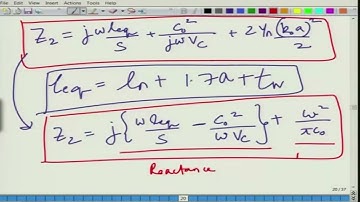 Z₂ = jω leq/S + c₀²/(jωVc) + 2 Yn (k₀a)²/2
leq = ln + 1.7a + tw
Z₂ = j{ω leq/S − c₀²/(ωVc)} + ω²/(πc₀)
Reactance
20 / 37
20